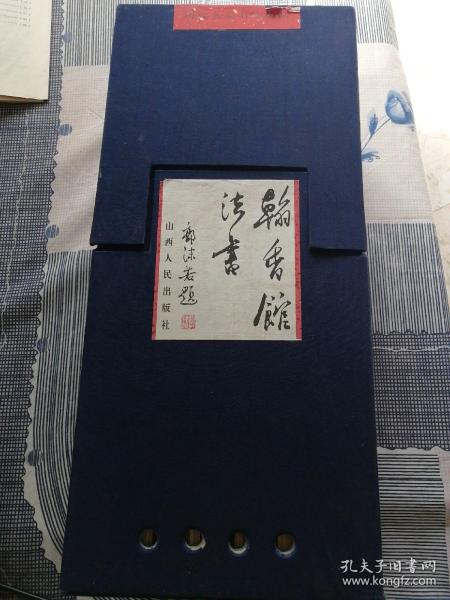 翰香館
法書
郭沫若題
山西人民出版社
孔夫子旧书网
www.kongfz.com